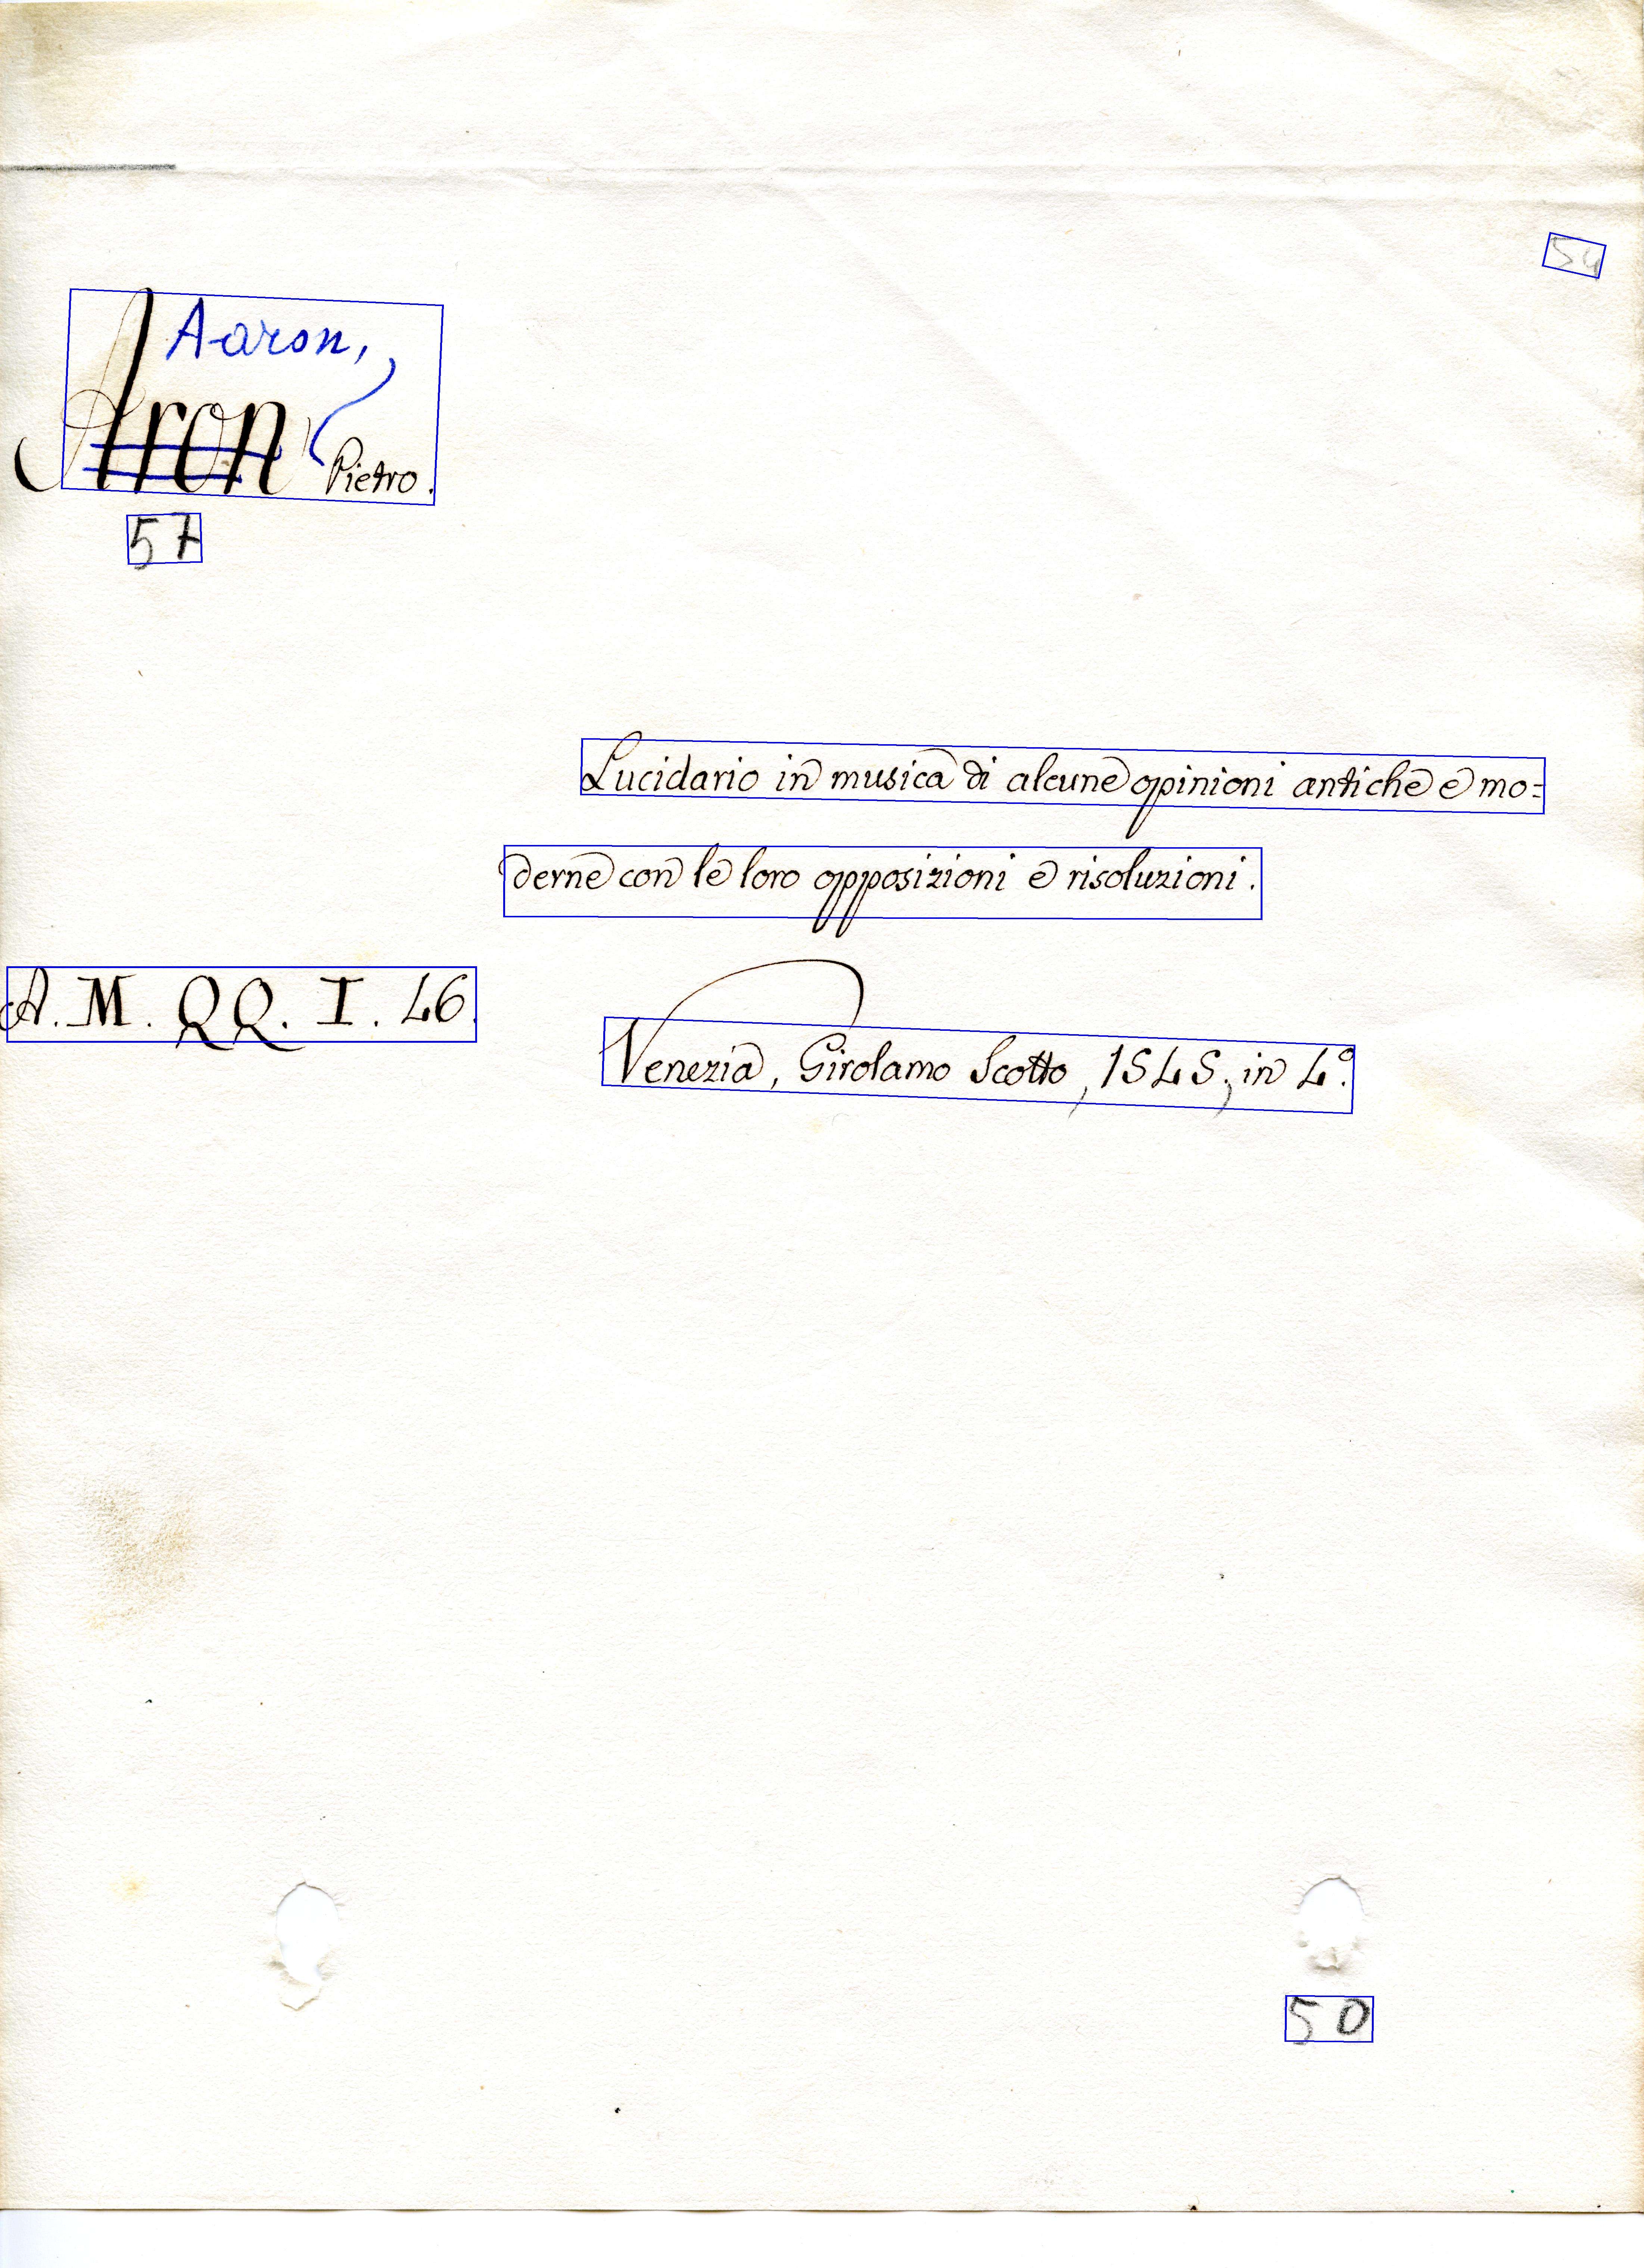 54
Aaron,
Aron Pietro.
57
Lucidario in musica di alcune opinioni antiche e mo=
derne con le loro opposizioni e risoluzioni.
A. M. QQ. I. 46.
Venezia, Girolamo Scotto, 1545, in 4.º
50